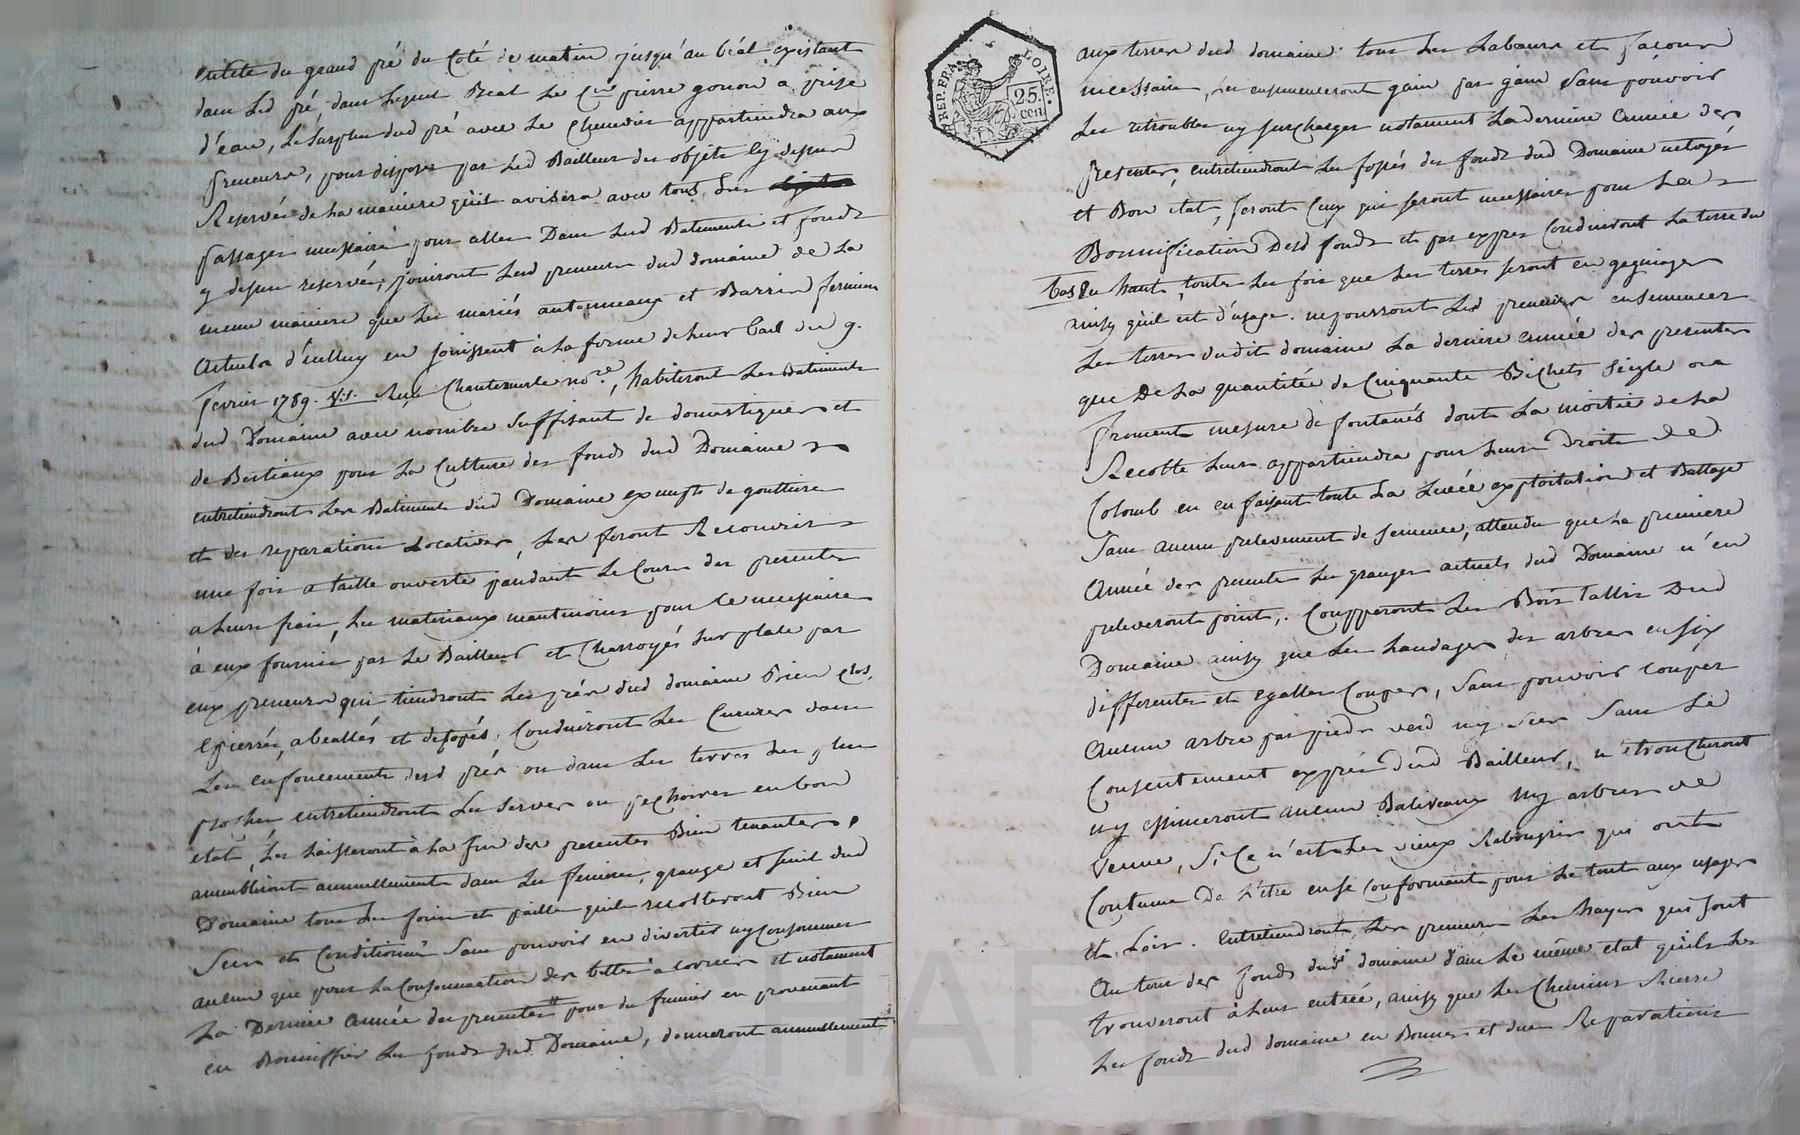 entete du grand pré du Coté de matin jusqu'au béal existant
dans led pré dans lequel Béal le Cen pierre gonon a prise
d'eau, le surplus dud pré avec le Chenevier appartiendra aux
preneurs, pour disposer par led Bailleur des objets cy dessus
Reservés de la maniere qu'il avisera avec tous les
passages necessaire pour aller Dans lesd Batiments et fonds
y dessus reservés, jouiront lesd preneurs dud domaine de la
meme maniere que les mariés et Barrin fermiers
actuels d'icelluy en jouissent à la forme de leur bail du 9.
fevrier 1789. Reçu Chantemerle nore, habiteront les Batiments
dud Domaine avec nombre suffisant de domestiques et
de Bestiaux pour la Culture des fonds dud Domaine
entretiendront les Batiments dud Domaine exempts de gouttiere
et des reparations Locatives, les feront Recouvrir
une fois a taille ouverte pandant le Cours des presentes
a leurs frais, les materiaux neantmoins pour ce necessaire
à eux fournis par le Bailleur et Charroyés sur place par
eux preneurs qui tiendront les prés dud domaine Bien clos,
Epierrés, abeallés et defossés, Conduiront les Curures dans
les enfoncements desd prés ou dans les terres les plus
proches entretiendront les serves ou pechoires en bon
etat, les laisseront à la fin des presentes Bien tenantes,
amenbliront annuellement dans les fenieres, grange et fenil dud
Domaine tous les foins et pailles quils recolteront Bien
Secs et Conditionné Sans pouvoir en divertir ny Consommer
aucun que pour la Consommation des bettes a cornes et notament
La Derniere année des presentes pour du fumier en provenant
en Bonniffier les fonds dud Domaine, donneront annuellement
REP. FRA. LOIRE.
25.
cen
aux terres dud domaine tous les Labours et façons
necessaire, les ensemenceront gain par gain Sans pouvoir
les retroubler ny surcharger notament La derniere année des
presentes, entretiendront les fossés des fonds dud Domaine netoyés
et Bon etat, feront Ceux qui seront necessaires pour la
Bonnification Desd fonds et par exprès Conduiront la terre du
bas en haut, toutes les fois que les terres seront en gagnage
ainsy qu'il est d'usage. ne pourront les preneurs ensemencer
les terres dudit domaine la derniere année des presentes
que De la quantitée de Cinquante Bichets Seigle ou
froment mesure de fontanés dont la moitié de la
Recolte leurs appartiendra pour leurs Droits de
Colomb en en faisant toute la Levée exploitation et Battage
Sans aucun prelevement de semence, attendu que la premiere
Année des presentes les grangers actuels dud Domaine n'en
preleveront point, Coupperont les Bois Taillis Dud
Domaine ainsy que les haudages des arbres en six
differentes et egalles Coupes, Sans pouvoir couper
Aucun arbre par pieds verd ny sec Sans le
Consentement exprès dud Bailleur, n'étroncheront
ny epinceront aucuns Baliveaux ny arbres de
Venue, Si Ce n'est les vieux Rabougris qui ont
Coutume De l'etre en se Conformant pour le tout aux usages
et Loix. Entretiendront les preneurs les hayes qui sont
Au tour des fonds dud domaine dans le même etat qu'ils les
trouveront à leur entrée, ainsy que les Chemins
les fonds dud domaine en Bonnes et dues Reparations